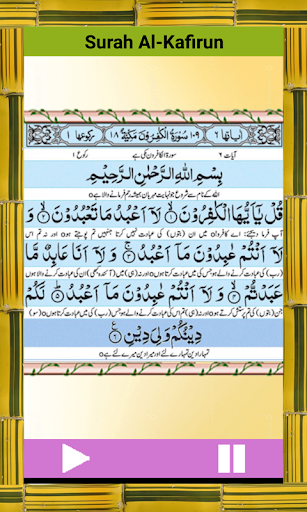 Surah Al-Kafirun
اٰیاتھا ٦ ١٠٩ سُوْرَةُ الْكٰفِرُوْنَ مَكِّيَّةٌ ١٨ رکوعھا ١
آیات ۶ سورۃ الکافرون مکی ہے رکوع ۱
بِسْمِ اللّٰهِ الرَّحْمٰنِ الرَّحِيْمِ
اللہ کے نام سے شروع جو نہایت مہربان ہمیشہ رحم فرمانے والا ہے ۝
قُلْ يٰۤاَيُّهَا الْكٰفِرُوْنَ ۙ۝۱ لَاۤ اَعْبُدُ مَا تَعْبُدُوْنَ ۙ۝۲ وَ
آپ فرما دیجئے: اے کافرو! ۝ میں ان (بتوں) کی عبادت نہیں کرتا جنہیں تم پوجتے ہو ۝ اور نہ تم اس
لَاۤ اَنْتُمْ عٰبِدُوْنَ مَاۤ اَعْبُدُ ۚ۝۳ وَ لَاۤ اَنَا عَابِدٌ مَّا
(رب) کی عبادت کرنے والے ہو جس کی میں عبادت کرتا ہوں ۝ اور نہ (ہی) میں (آئندہ کبھی) ان کی عبادت کرنے والا ہوں
عَبَدْتُّمْ ۙ۝۴ وَ لَاۤ اَنْتُمْ عٰبِدُوْنَ مَاۤ اَعْبُدُ ؕ۝۵ لَكُمْ
جن (بتوں) کی تم پرستش کرتے ہو ۝ اور نہ (ہی) تم اس کی عبادت کرنے والے ہو جس (رب) کی میں عبادت کرتا ہوں ۝ (سو)
دِيْنُكُمْ وَلِيَ دِيْنِ ۝۶
تمہارا دین تمہارے لئے اور میرا دین میرے لئے ہے ۝